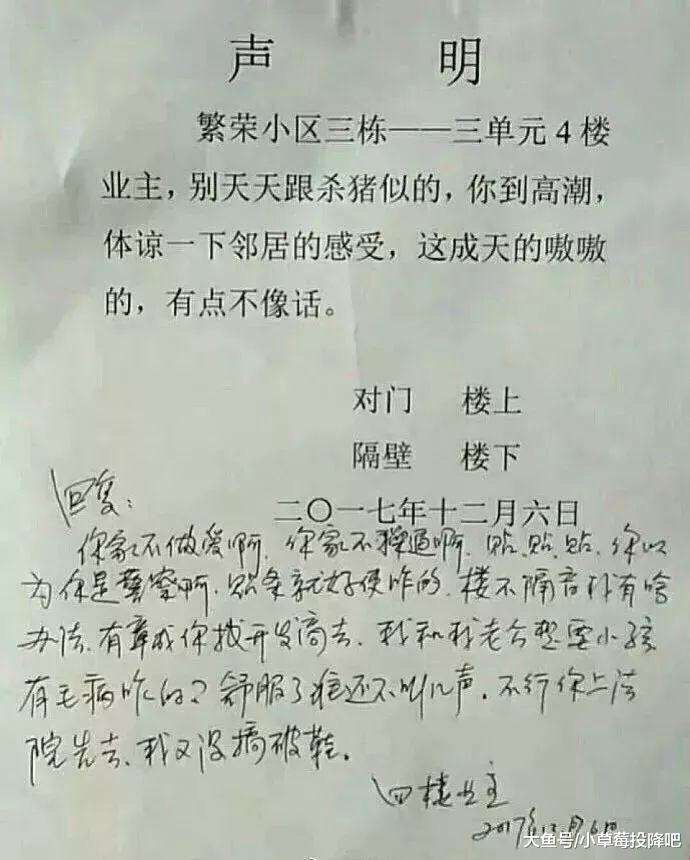 声 明
繁荣小区三栋——三单元4楼
业主，别天天跟杀猪似的，你到高潮，
体谅一下邻居的感受，这成天的嗷嗷
的，有点不像话。
对门 楼上
隔壁 楼下
二〇一七年十二月六日
回复：
你家不做爱啊，你家不操逼啊，贴，贴，贴，你以
为你是警察啊，贴条就好使咋的，楼不隔音我有啥
办法，有章成你找开发商去，我和我老公想要小孩
有毛病咋的？舒服了谁还不叫几声，不行你上法
院告去，我又没搞破鞋。
四楼业主
2017年12月6日
大鱼号/小草莓投降吧